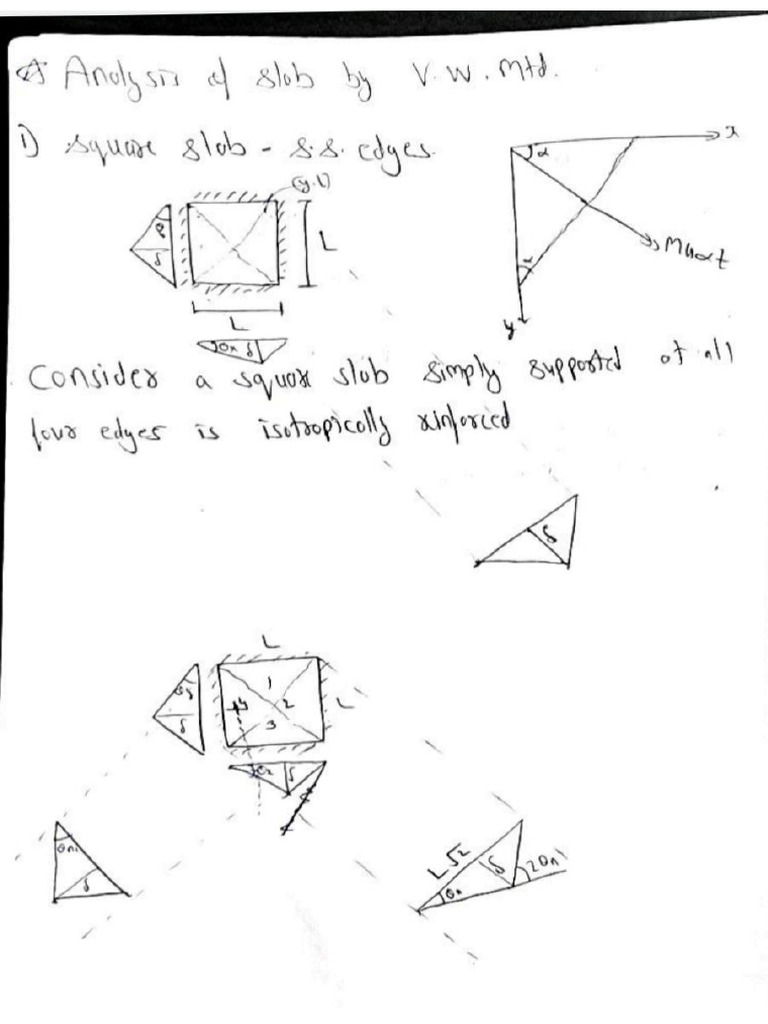 Analysis of slab by V.W. Mtd.
1) square slab - s.s. edges.
(y.l)
x
α
L
δ
Muαt
L
y
θn δ
Consider a square slab simply supported at all
four edges is isotropically reinforced
δ
L
1
θy
2
L
δ
3
θx δ
θn
δ
L√2
δ
2θn
θn